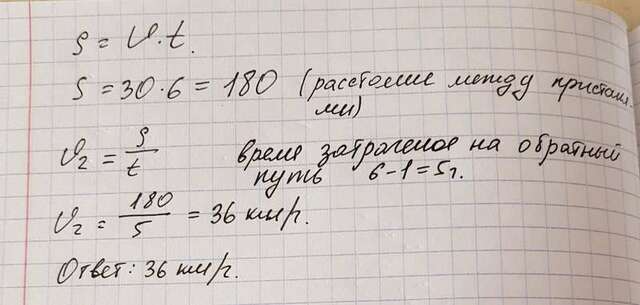 S = V·t.
S = 30·6 = 180 (расстояние между пристаня-
ми)
V₂ = S/t время затраченое на обратный
путь 6-1=5ч.
V₂ = 180/5 = 36 км/ч.
Ответ: 36 км/ч.